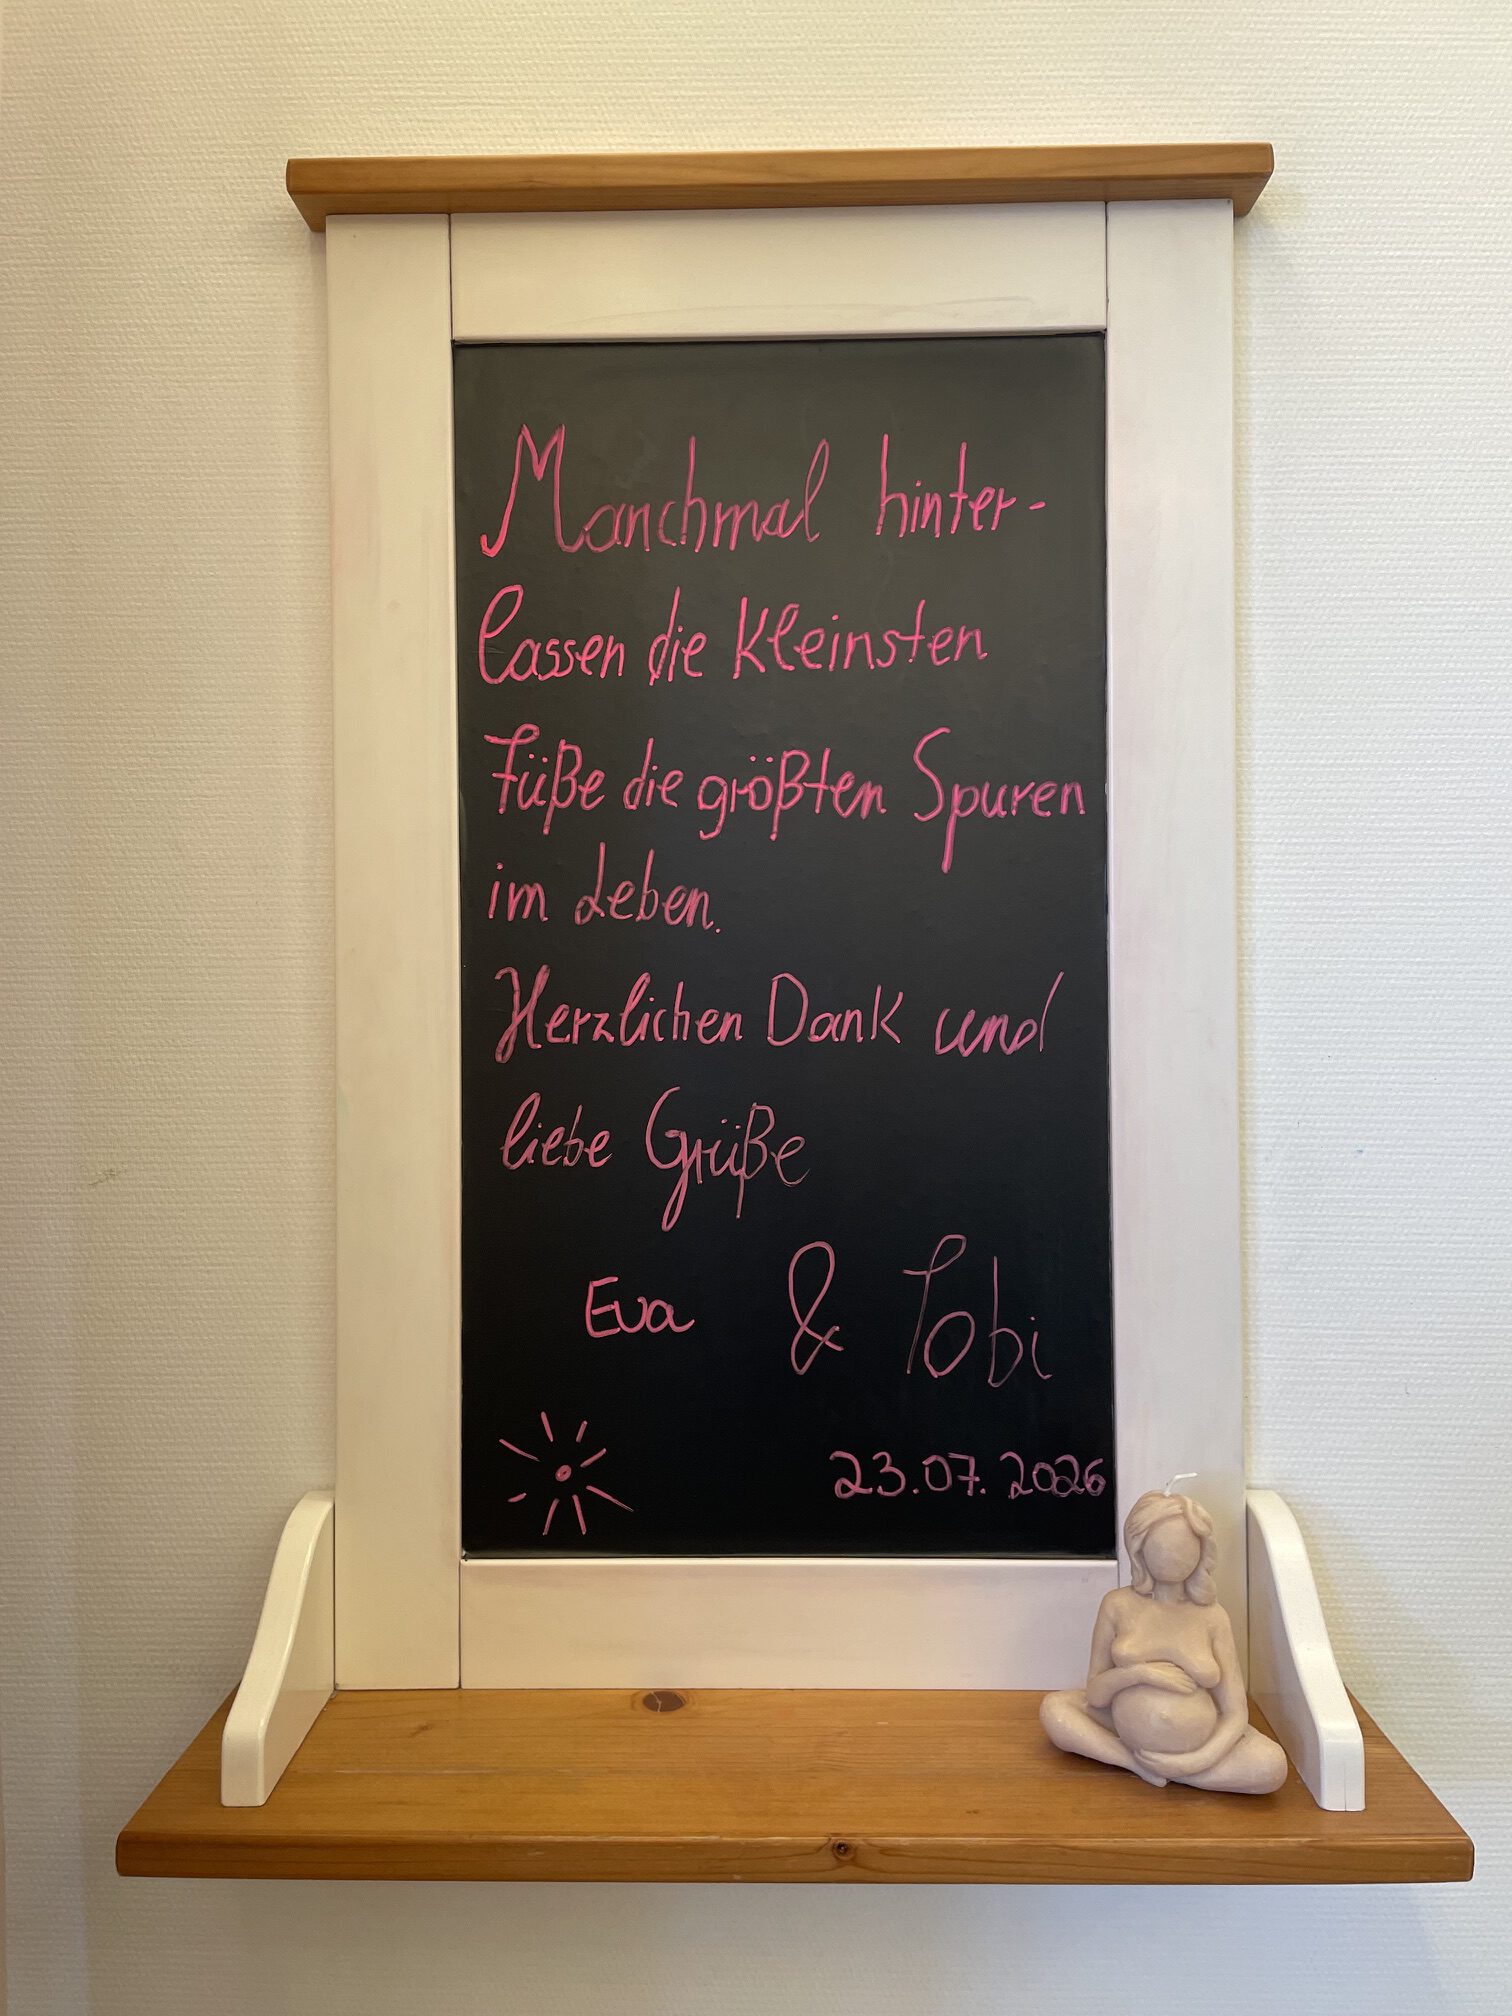 Manchmal hinter-
lassen die kleinsten
Füße die größten Spuren
im Leben.
Herzlichen Dank und
liebe Grüße
Eva & Tobi
23.07.2026